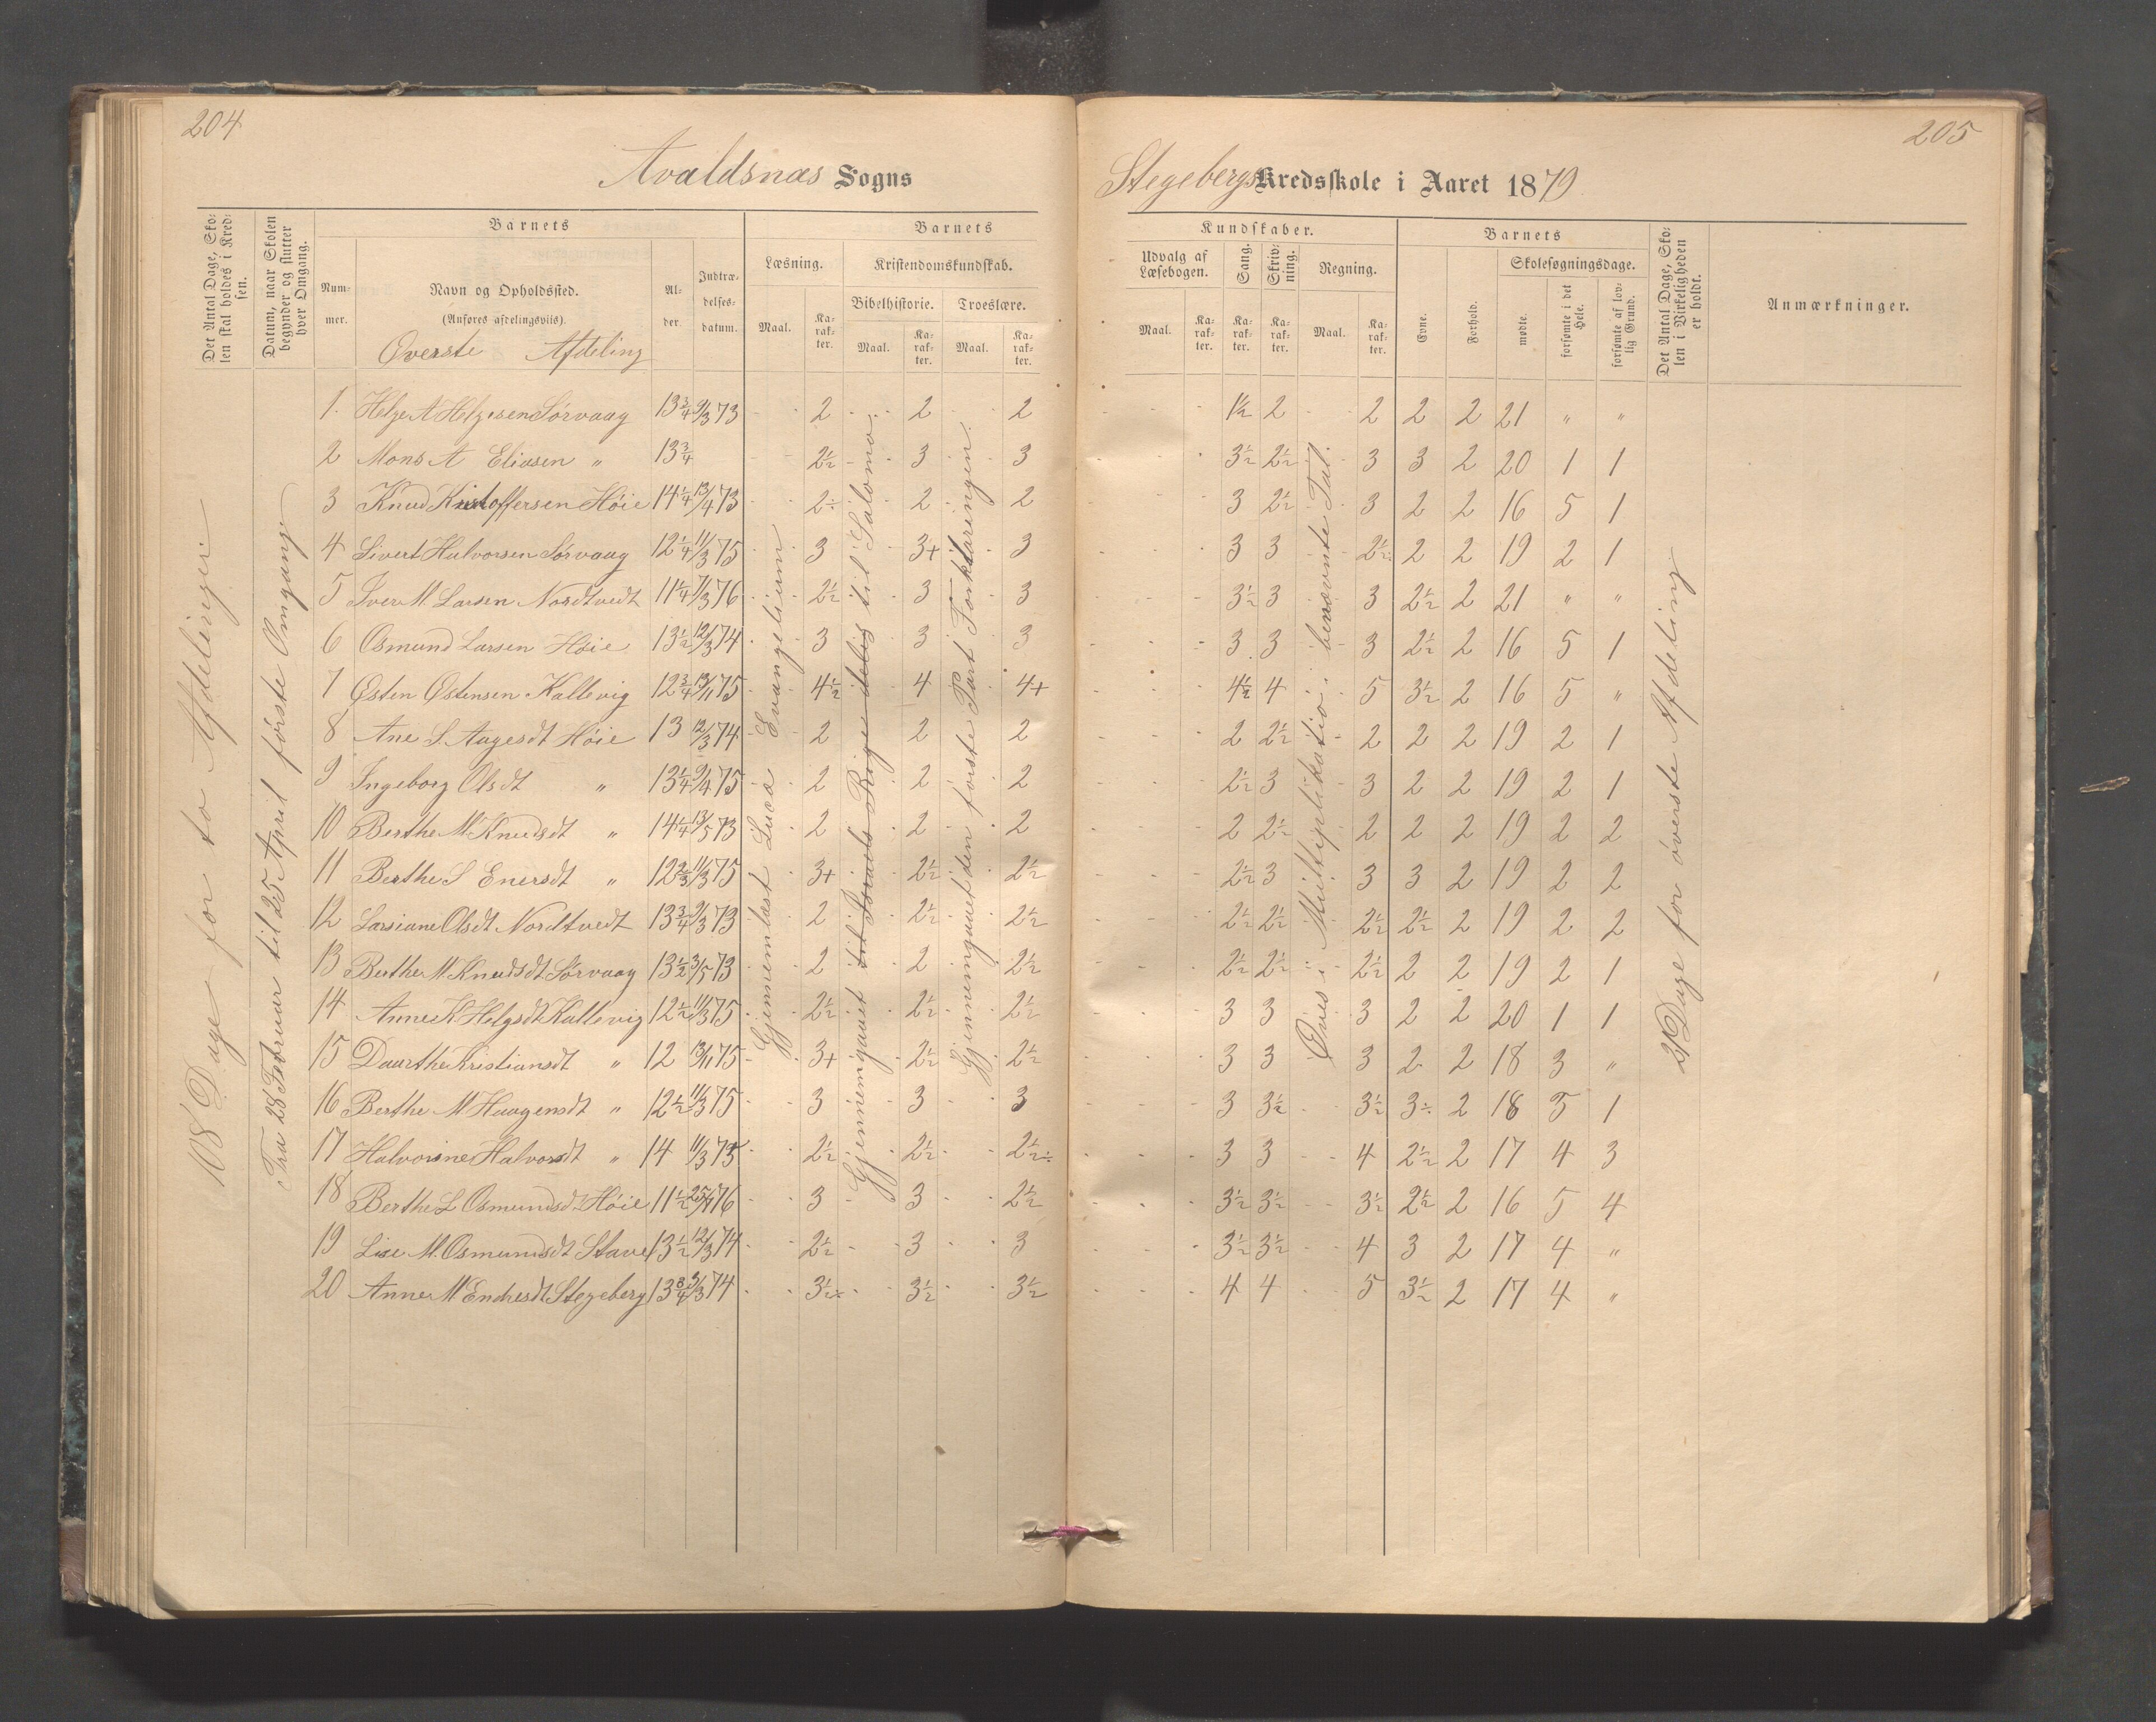 204
Avaldsnæs Sogns
Det Antal Dage, Sko-
len skal holdes i Kred-
sen.
Datum, naar Skolen
begynder og slutter
hver Omgang.
Barnets
Num-
mer.
Navn og Opholdssted.
(Anføres afdelingsviis).
Øverste Afdeling
Al-
der.
Indtræ-
delses-
datum.
Barnets
Læsning.
Maal.
Ka-
rak-
ter.
Kristendomskundskab.
Bibelhistorie.
Maal.
Ka-
rak-
ter.
Troeslære.
Maal.
Ka-
rak-
ter.
108 Dage for to Afdelinger
Fra 28 Februar til 25 April første Omgang
1. Helge A Helgesen Sørvaag 13 3/4 9/3 73 2 2 2
2 Mons A Eliasen " 13 3/4 2½ 3 3
3 Knud Kristoffersen Høie 14 1/4 13/4 73 2÷ 2 2
4 Sivert Halvorsen Sørvaag 12 1/4 11/3 75 3 3+ 3
5 Iver M. Larsen Nordtvedt 11 1/4 7/3 76 2½ 3 3
6 Osmund Larsen Høie 13½ 12/3 74 3 3 3
7 Østen Østensen Kallevig 12 3/4 13/11 75 4½ 4 4+
8 Ane S Aagesdt Høie 13 12/3 74 2 2 2
9 Ingeborg Olsdt " 13 1/4 9/4 75 2 2 2
10 Berthe M. Knudsdt " 14 1/4 13/5 73 2 2 2
11 Berthe S Enersdt " 12 2/3 11/3 75 3+ 2½ 2½
12 Larsiane Olsdt Nordtvedt 13 3/4 9/3 73 2 2½ 2½
13 Berthe M Knudsdt Sørvaag 13½ 3/5 73 2 2 2½
14 Anne K Helgsdt Kallevig 12½ 11/3 75 2½ 2½ 2½
15 Daarthe Kristiansdt " 12 13/11 75 3+ 2½ 2½
16 Berthe M Haagensdt " 12½ 11/3 75 3 3 3
17 Halvorine Halvorsdt " 14 11/3 73 2½ 2½ 2½÷
18 Berthe L Osmundsdt Høie 11½ 25/4 76 3 3 2½
19 Lise M. Osmundsdt Stave 13½ 12/3 74 2½ 3 3
20 Anne M Endresdt Stegeberg 13 3/4 9/3 74 3½÷ 3½ 3½
Gjennemlæst Lucæ Evangelium
Gjennemgaaet til Israels Riges deling til Salomo.
Gjennemgaaet den første Part Forklaringen.
205
Stegebergs Kredsskole i Aaret 1879
Kundskaber.
Udvalg af
Læsebogen.
Maal.
Ka-
rak-
ter.
Sang.
Ka-
rak-
ter.
Skriv-
ning.
Ka-
rak-
ter.
Regning.
Maal.
Ka-
rak-
ter.
Barnets
Evne.
Forhold.
Skolesøgningsdage.
mødte.
forsømte i det
Hele.
forsømte af lov-
lig Grund.
Det Antal Dage, Sko-
len i Virkeligheden
er holdt.
Anmærkninger.
1½ 2 2 2 2 21 " "
3½ 2½ 3 3 2 20 1 1
3 2½ 3 2 2 16 5 1
3 3 2½ 2 2 19 2 1
3½ 3 3 2½ 2 21 " "
3 3 3 2½ 2 16 5 1
4½ 4 5 3½ 2 16 5 "
2 2½ 2 2 2 19 2 1
2½ 3 3 2 2 19 2 1
2 2½ 2 2 2 19 2 2
2½ 3 3 3 2 19 2 2
2½ 2½ 2½ 2½ 2 19 2 2
2½ 2½ 2½ 2 2 19 2 1
3 3 3 2 2 20 1 1
3 3 3 2 2 18 3 "
3 3½ 3½ 3÷ 2 18 3 1
3 3 4 2½ 2 17 4 3
3½ 3½ 3½ 2½ 2 16 5 4
3½ 3½ 4 3 2 17 4 "
4 4 5 3½ 2 17 4 "
Øves i Multiplikatio i benævnte Tal.
21 Dage for øverste Afdeling